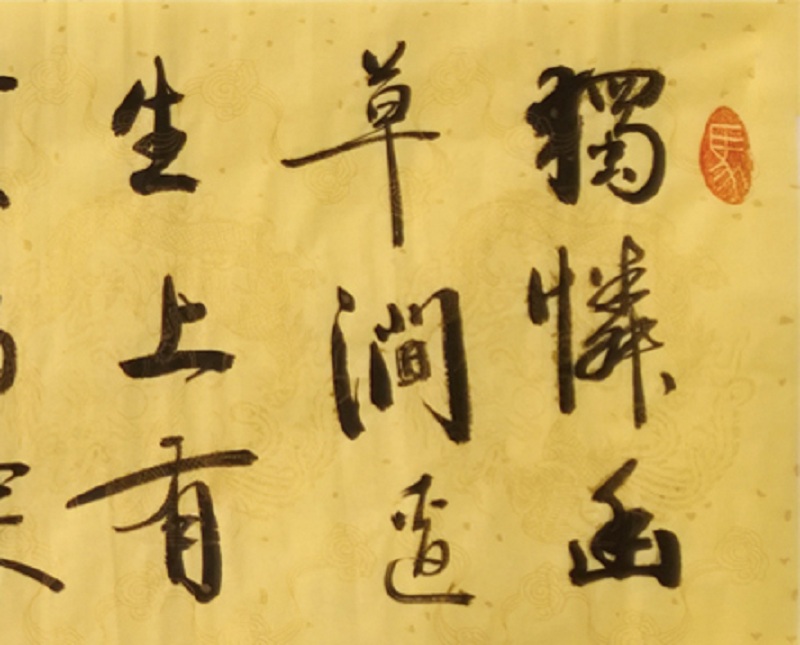 獨憐幽
草澗邊
生上有